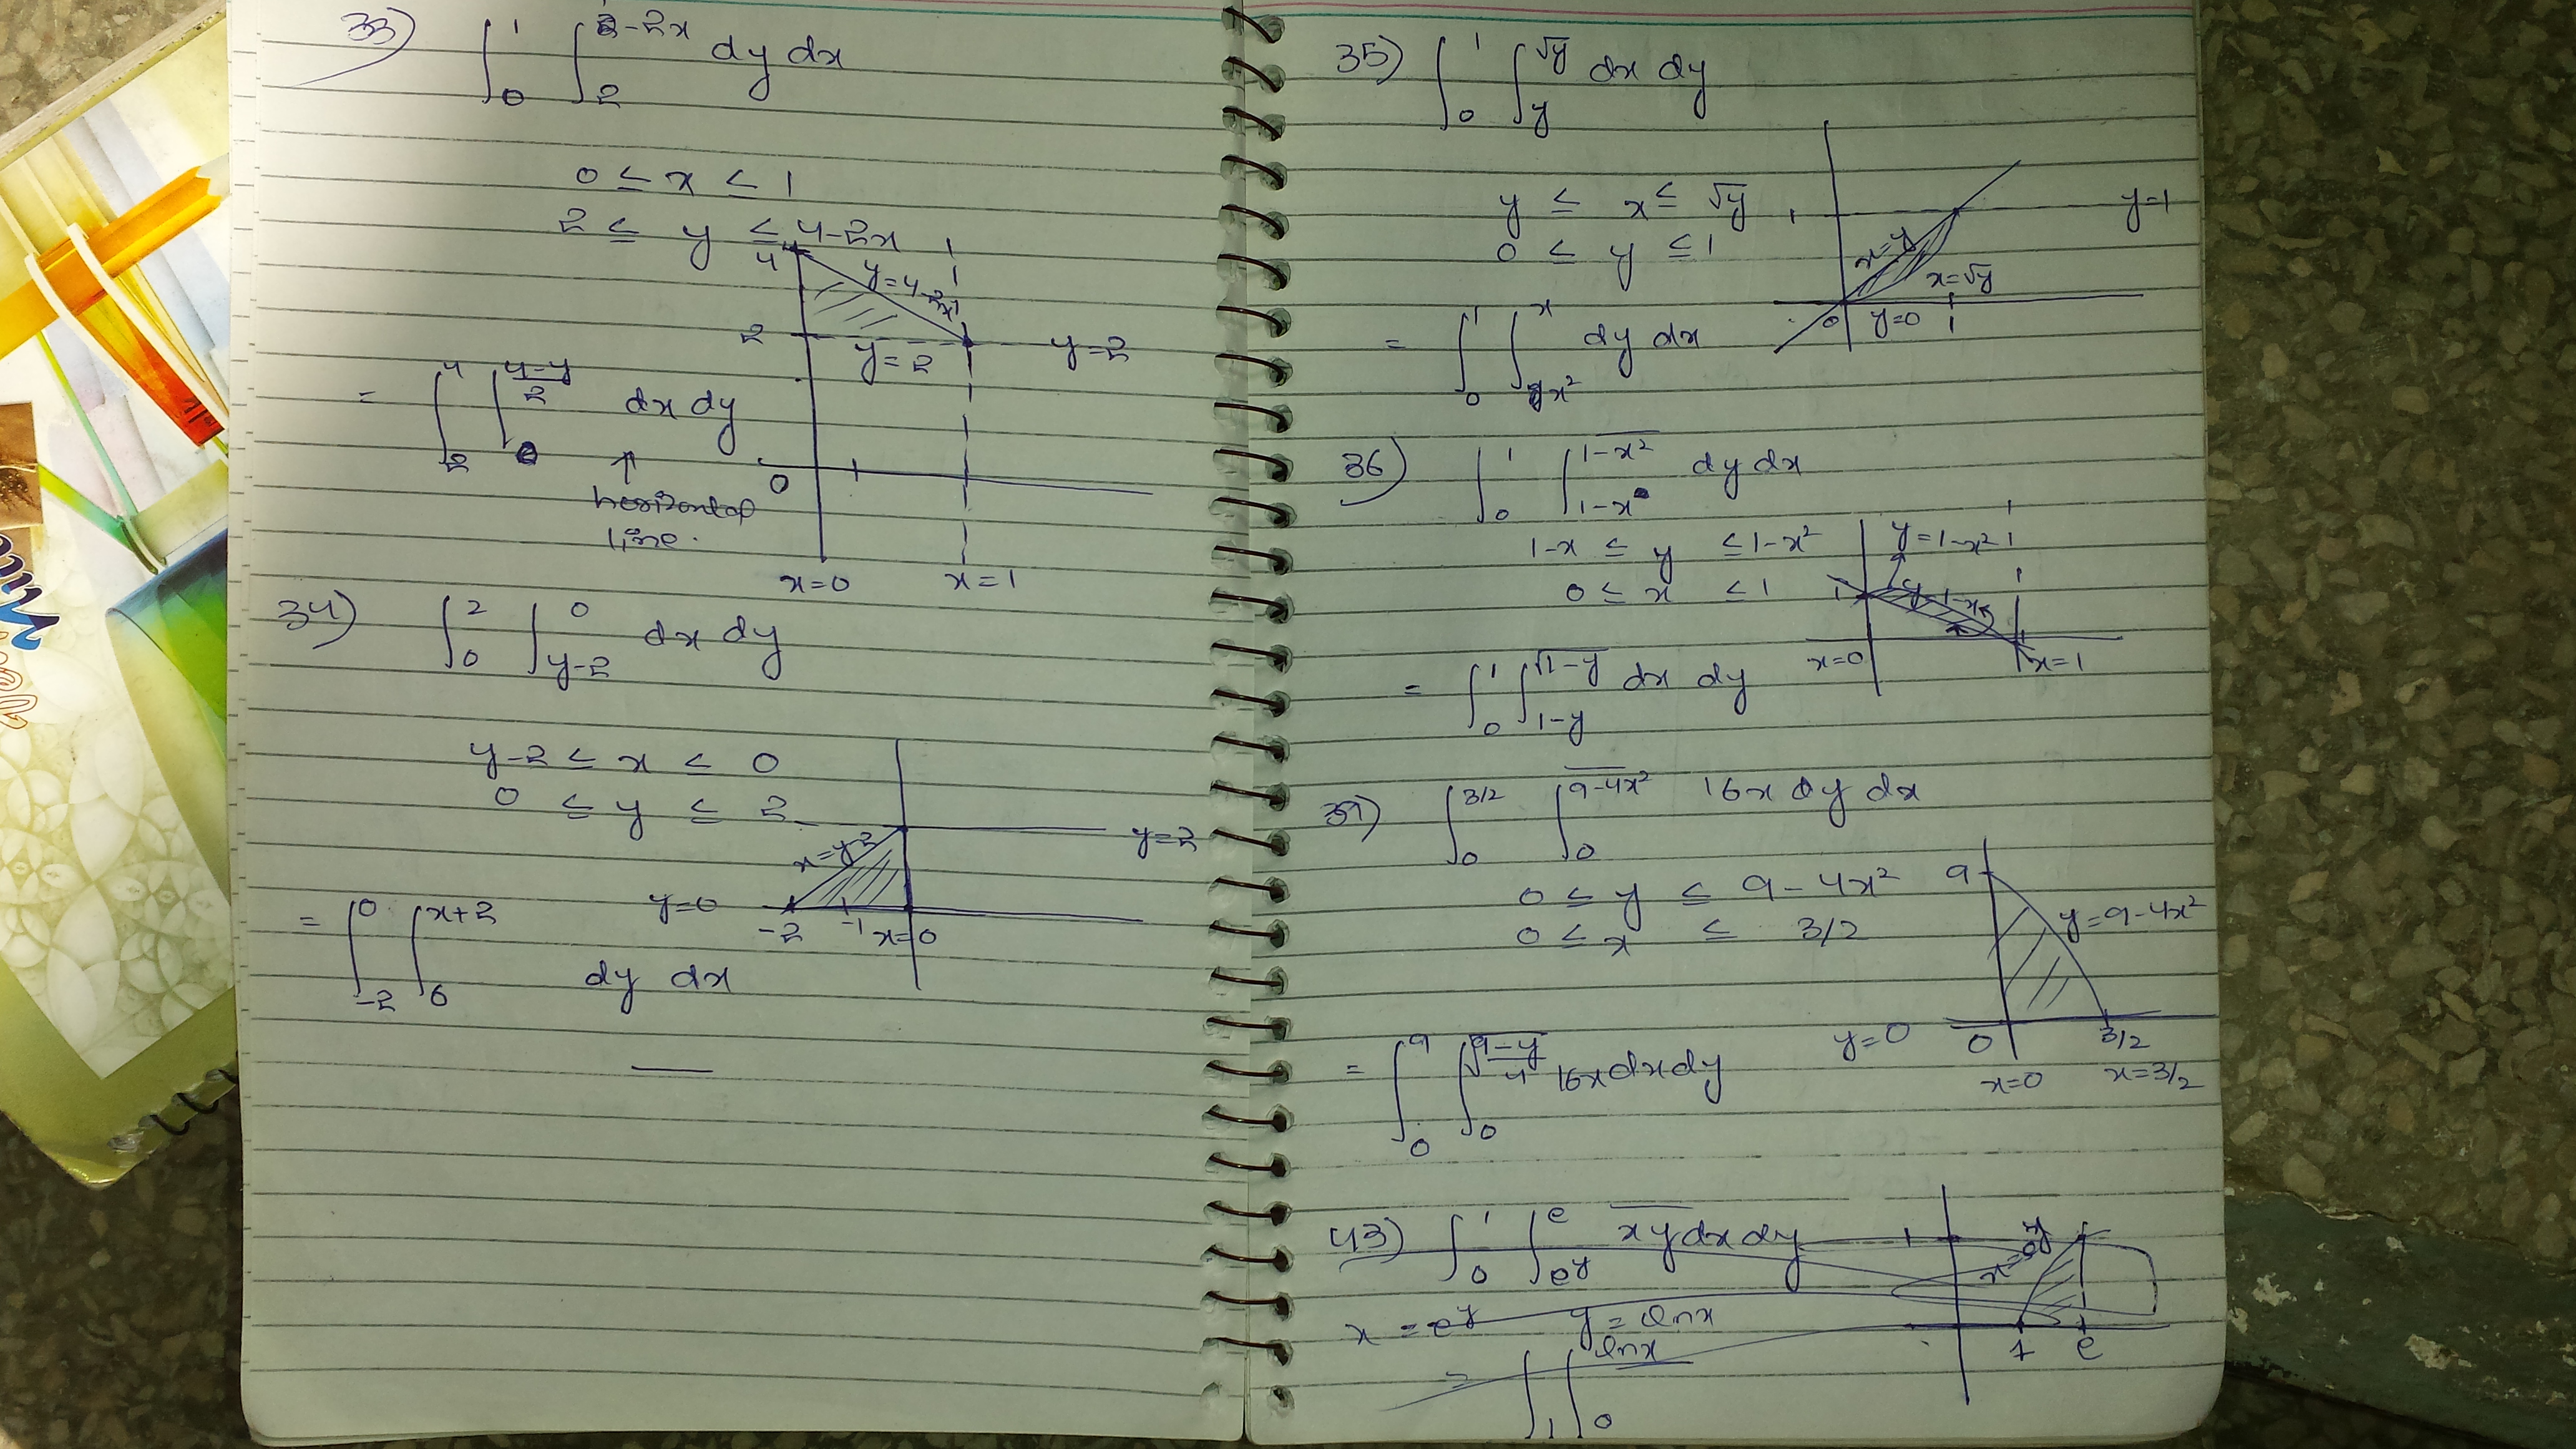 33) ∫₀¹ ∫₂^{4-2x} dy dx
0 ≤ x ≤ 1
2 ≤ y ≤ 4-2x
4
y=4-2x
2
y=2
y=2
= ∫₂⁴ ∫₀^{(4-y)/2} dx dy
↑
horizontal
line.
0
x=0
x=1
34) ∫₀² ∫_{y-2}^0 dx dy
y-2 ≤ x ≤ 0
0 ≤ y ≤ 2
y=2
x=y-2
y=0
-2 -1 x=0
= ∫_{-2}^0 ∫₀^{x+2} dy dx
35) ∫₀¹ ∫_y^{√y} dx dy
y ≤ x ≤ √y
0 ≤ y ≤ 1
1
y=1
x=y
x=√y
0 y=0 1
= ∫₀¹ ∫_{x²}^x dy dx
36) ∫₀¹ ∫_{1-x}^{1-x²} dy dx
1-x ≤ y ≤ 1-x²
0 ≤ x ≤ 1
y=1-x²
1
y=1-x
x=0
x=1
= ∫₀¹ ∫_{1-y}^{√1-y} dx dy
39) ∫₀^{3/2} ∫₀^{9-4x²} 16x dy dx
0 ≤ y ≤ 9-4x²
0 ≤ x ≤ 3/2
9
y=9-4x²
y=0
0
3/2
x=0
x=3/2
= ∫₀⁹ ∫₀^{√(9-y)/4} 16x dx dy
43) ∫₀¹ ∫_{e^y}^e xy dx dy
1
x=e^y
1 e
x = e^y y = lnx
= ∫₁ ∫₀^{lnx}